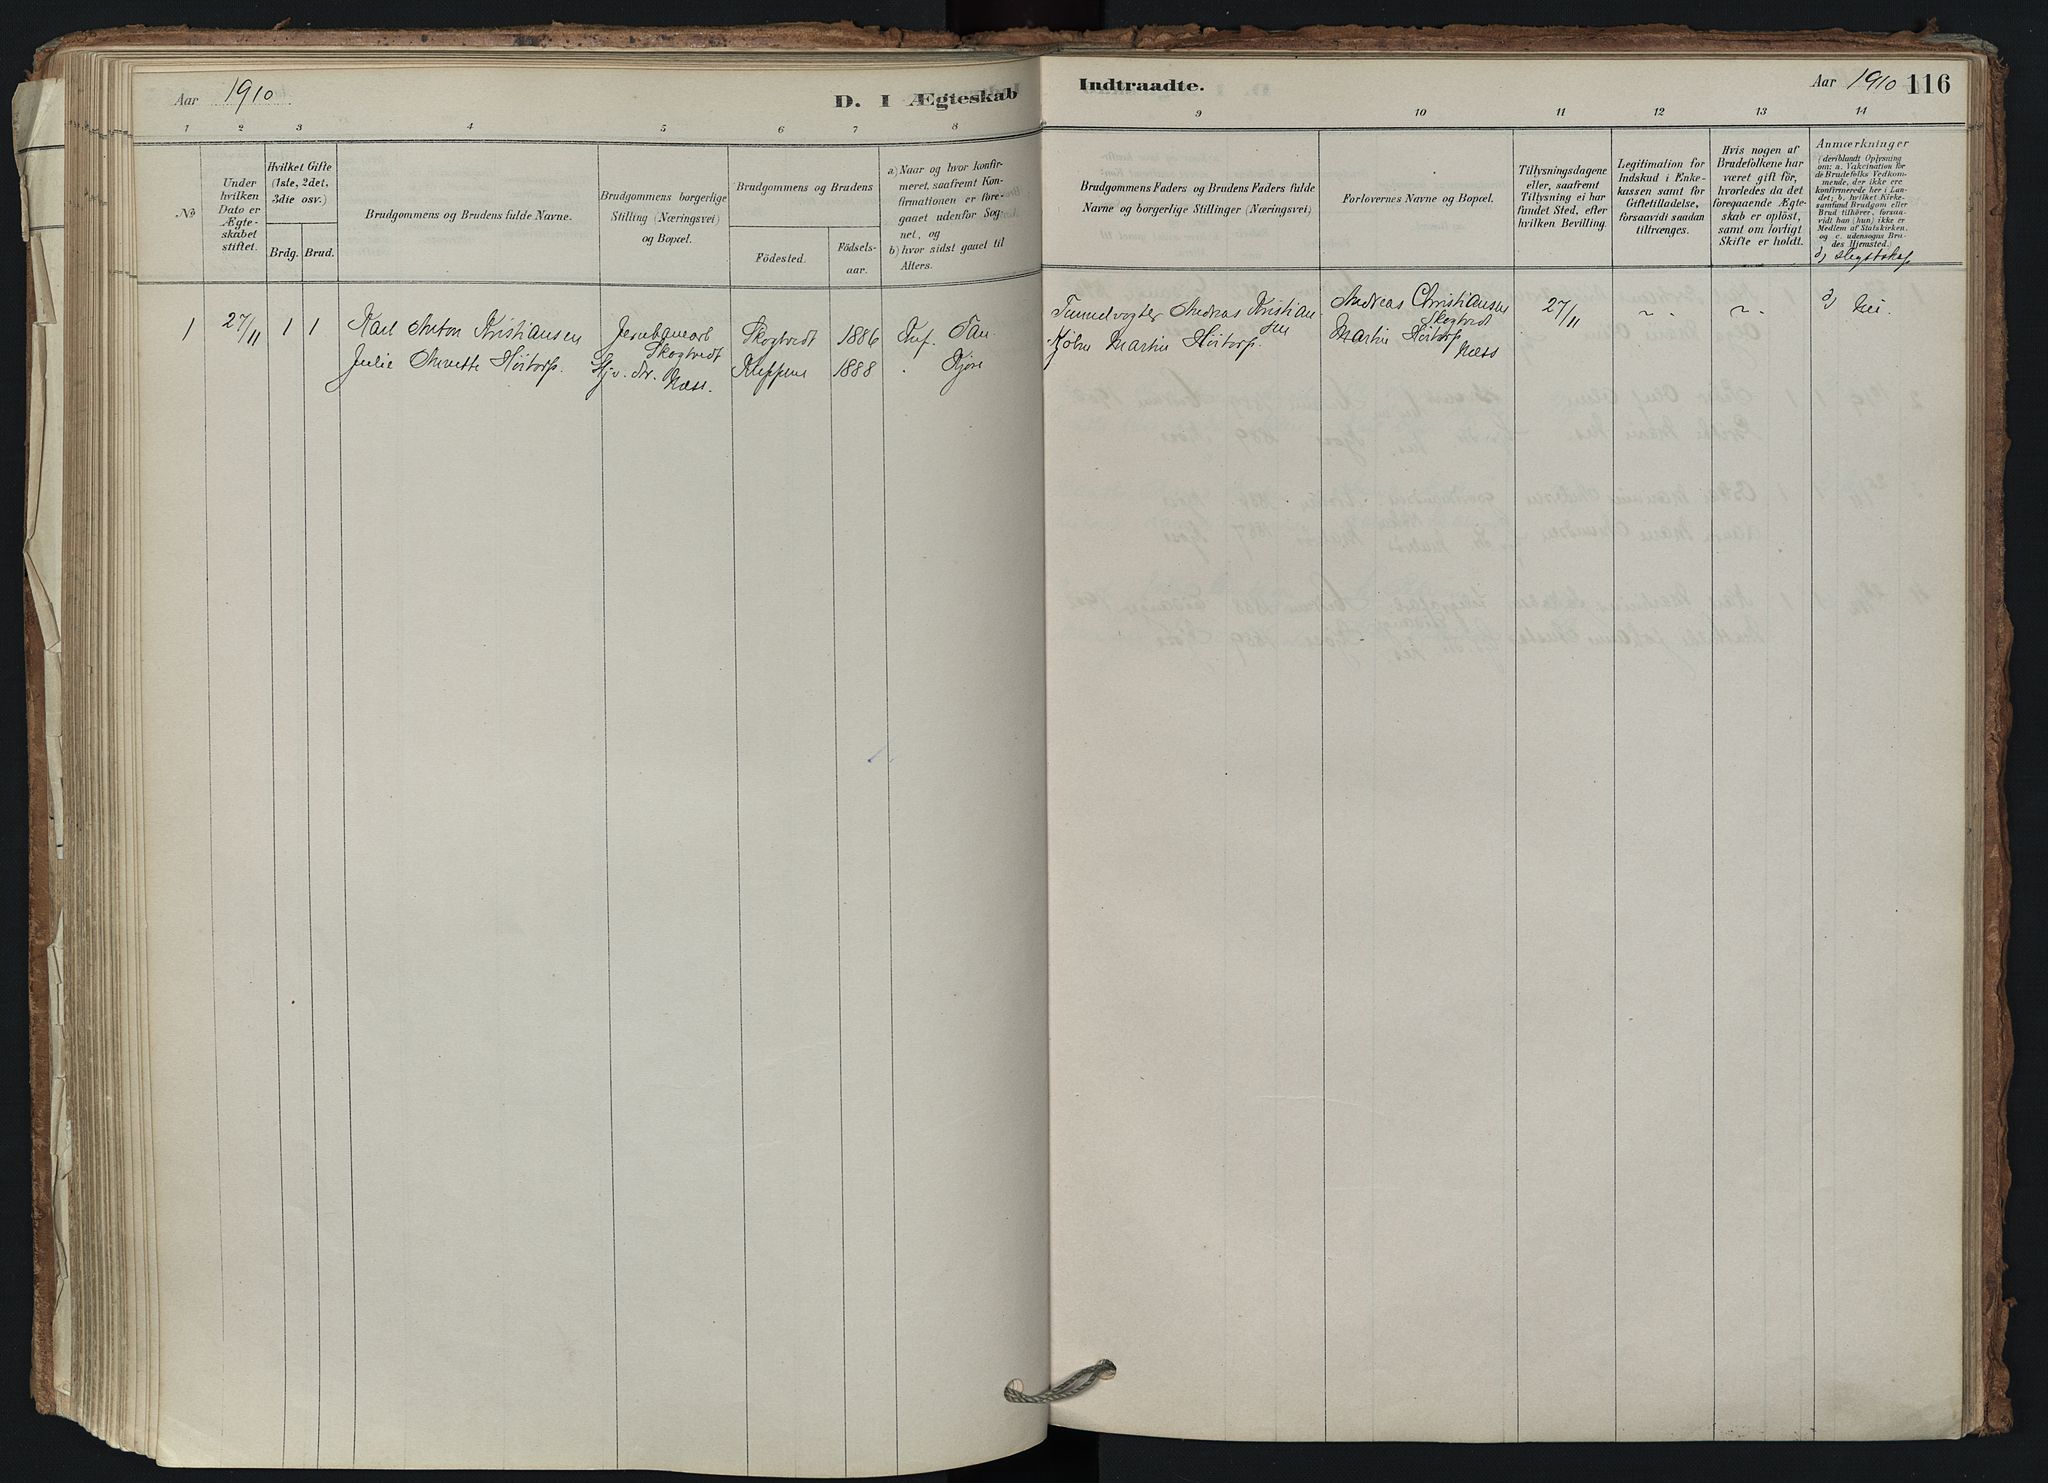 Aar 1910
D. I Ægteskab
Indtraadte.
Aar 1910 116
1 2 3 4 5 6 7 8 9 10 11 12 13 14
No
Under
hvilken
Dato er
Ægte-
skabet
stiftet.
Hvilket Gifte
(1ste, 2det,
3die osv.)
Brdg. Brud.
Brudgommens og Brudens fulde Navne.
Brudgommens borgerlige
Stilling (Næringsvei)
og Bopæl.
Brudgommens og Brudens
Födested.
Födsels-
aar.
a) Naar og hvor konfir-
meret, saafremt Kon-
firmationen er fore-
gaaet udenfor Sog-
net, og
b) hvor sidst gaaet til
Alters.
Brudgommens Faders og Brudens Faders fulde
Navne og borgerlige Stillinger (Næringsvei)
Forlovernes Navne og Bopæl.
Tillysningsdagene
eller, saafremt
Tillysning ei har
fundet Sted, efter
hvilken Bevilling.
Legitimation for
Indskud i Enke-
kassen samt for
Giftetilladelse,
forsaavidt saadan
tiltrænges.
Hvis nogen af
Brudefolkene har
været gift för,
hvorledes da det
foregaaende Ægte-
skab er oplöst,
samt om lovligt
Skifte er holdt.
Anmærkninger
(deriblandt Oplysning
om: a. Vakcination for
de Brudefolks Vedkom-
mende, der ikke ere
konfirmerede her i Lan-
det; b. hvilket Kirke-
samfund Brudgom eller
Brud tilhörer, forsaa-
vidt han (hun) ikke er
Medlem af Statskirken,
og c. udensogns Bru-
des Hjemsted.)
d) Slegtskap
1 27/11 1 1 Karl Anton Kristiansen Jernbanearb. Skogtvedt 1886 Tan
Skogtvedt
Julie Anette Höitorp. Hjv. dtr. Kleppene 1888 Kjöse
Næss.
Tunnelvogter Andreas Kristian-
sen
Martin Höitorp.
Andreas Christiansen
Skogtvedt
Martin Höitorp
Næss
27/11 d) Nei